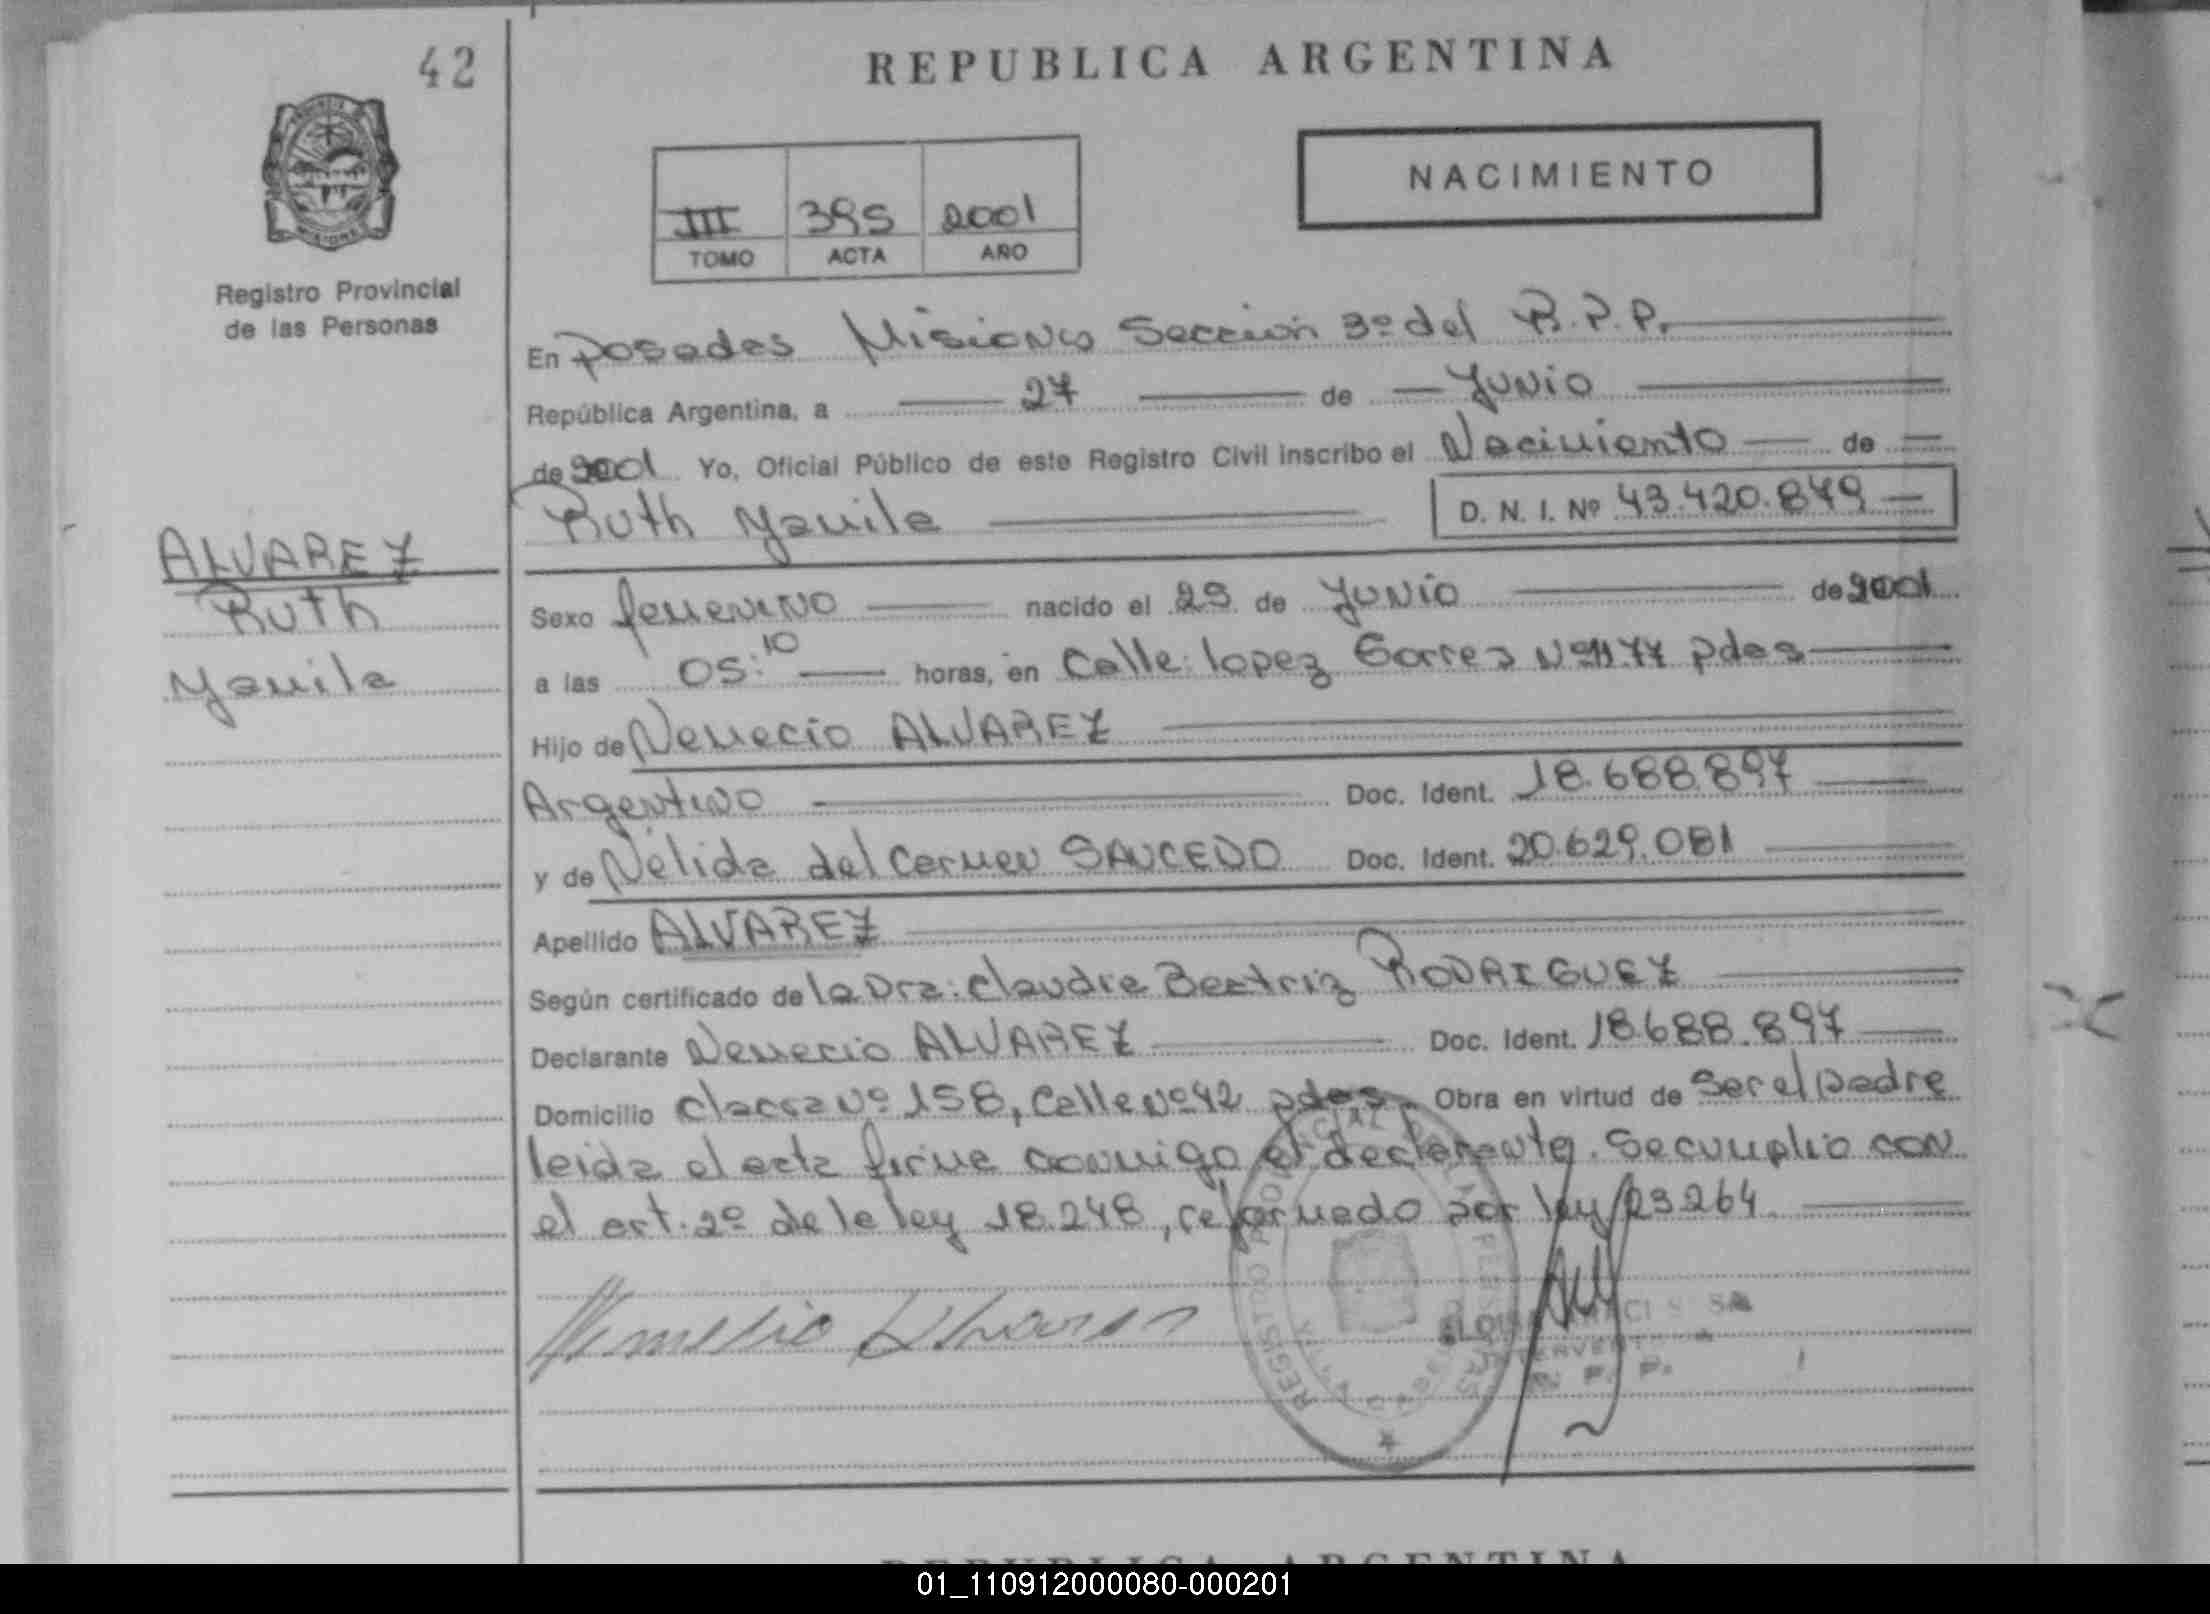 42
REPUBLICA ARGENTINA
NACIMIENTO
III 395 2001
TOMO ACTA AÑO
Registro Provincial
de las Personas
En Posadas Misiones Sección 3º del R.P.P.
República Argentina, a 27 de Junio
de 2001 Yo, Oficial Público de este Registro Civil inscribo el Nacimiento de
Ruth Yamila D. N. I. Nº 43.420.879
ALVAREZ
Ruth
Yamila
Sexo femenino nacido el 25 de Junio de 2001
a las 05:10 horas, en Calle: Lopez Torres Nº 1177 Pdas
Hijo de Nemecio ALVAREZ
Argentino Doc. Ident. 18.688.897
y de Nelida del Carmen SAUCEDO Doc. Ident. 20.629.081
Apellido ALVAREZ
Según certificado de la Dra: Claudia Beatriz RODRIGUEZ
Declarante Nemecio ALVAREZ Doc. Ident. 18.688.897
Domicilio Chacra Nº 158, Calle Nº 42 pdas. Obra en virtud de Ser el padre
leida el acta firma conmigo el declarante. Se cumplio con
el art. 2º de la ley 18.248, reformado por ley 23264
REGISTRO PROVINCIAL DE LAS PERSONAS
REPUBLICA ARGENTINA
01_110912000080-000201